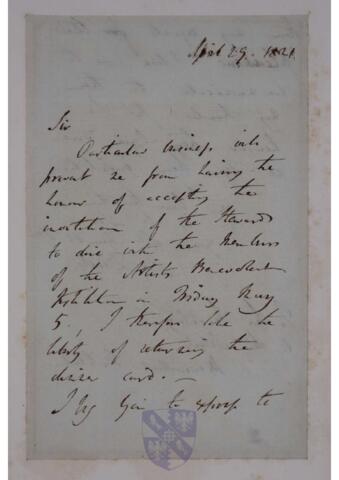 April 29. 1821
Sir
Particular business will
prevent me from having the
honour of accepting the
invitation of the Stewards
to dine with the Members
of the Artists Benevolent
Institution on Friday May
5, I therefore take the
liberty of returning the
dinner card. —
I beg you to express to